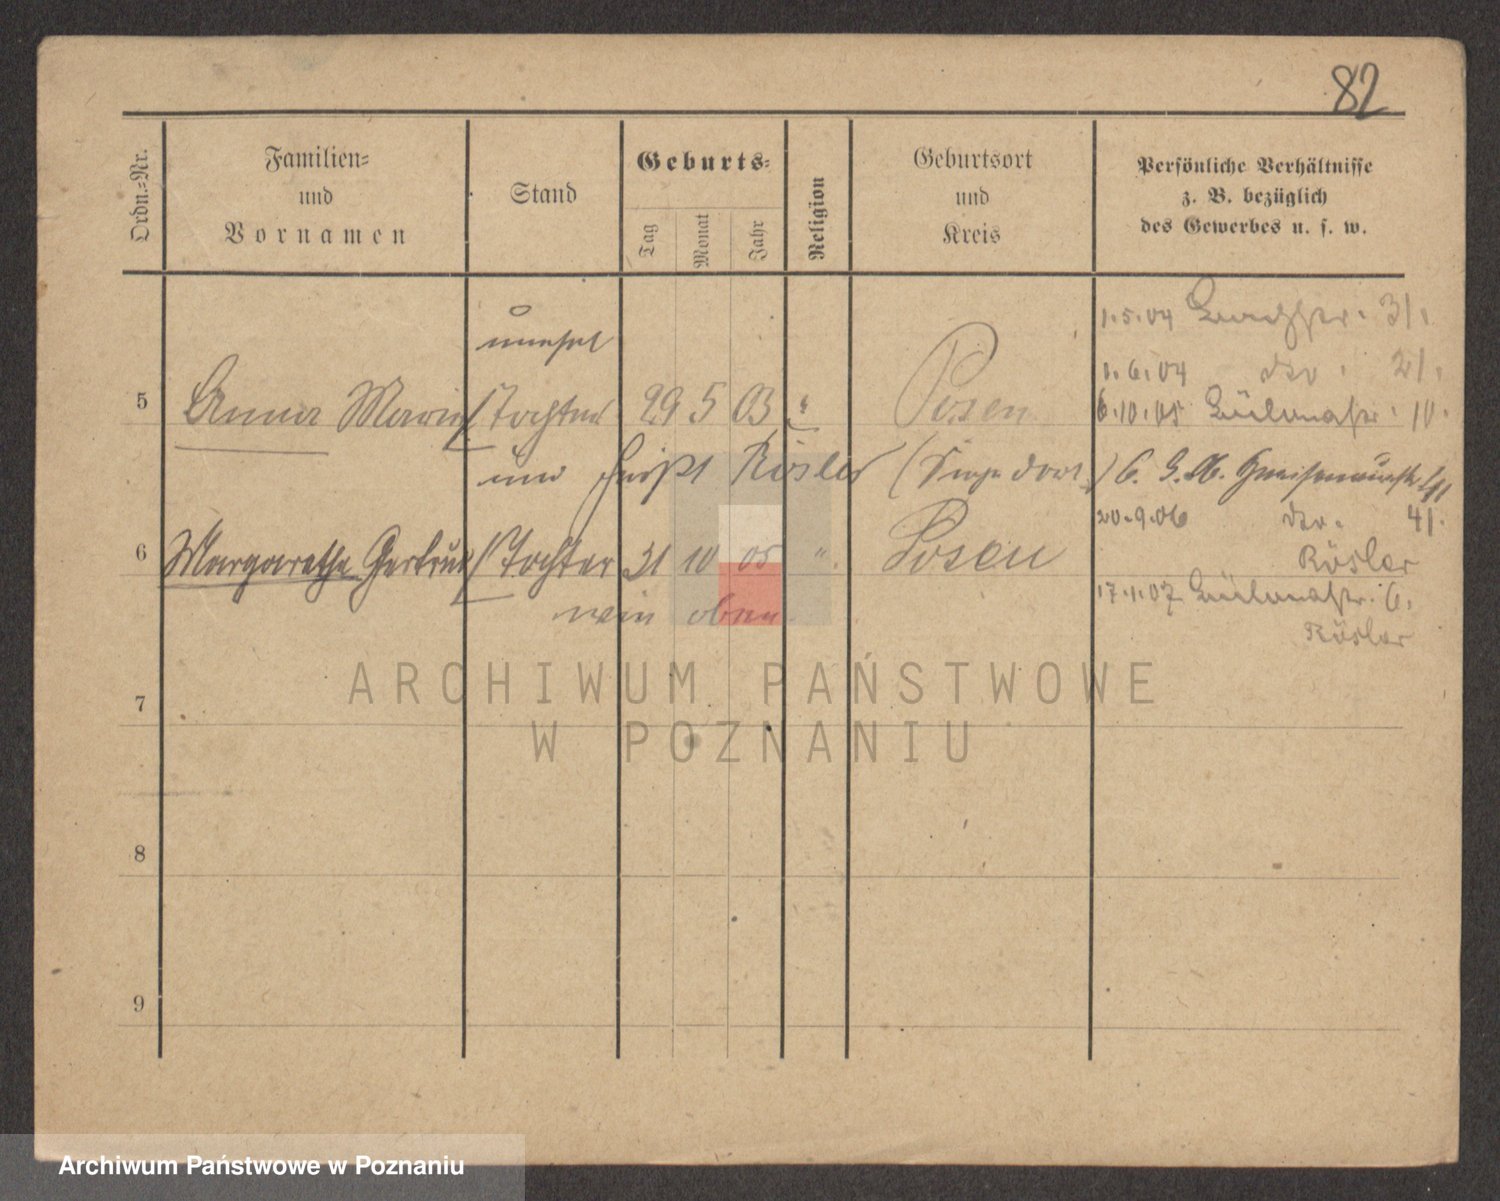 82
Ordn.=Nr.
Familien=
und
Vornamen
Stand
Geburts=
Tag
Monat
Jahr
Religion
Geburtsort
und
Kreis
Persönliche Verhältnisse
z. B. bezüglich
des Gewerbes u. s. w.
1.5.04 31.
unehel
1.6.04 dto. 21.
5 Anna Marie Tochter 29 5 03 " Posen
6.10.05 10.
und heißt Rösler
20.9.06 dto. 41.
6 Margarethe Gertrud Tochter 31 10 05 " Posen
Rösler
17.1.07 6.
wie oben
Rösler
7
8
9
ARCHIWUM PAŃSTWOWE
W POZNANIU
Archiwum Państwowe w Poznaniu